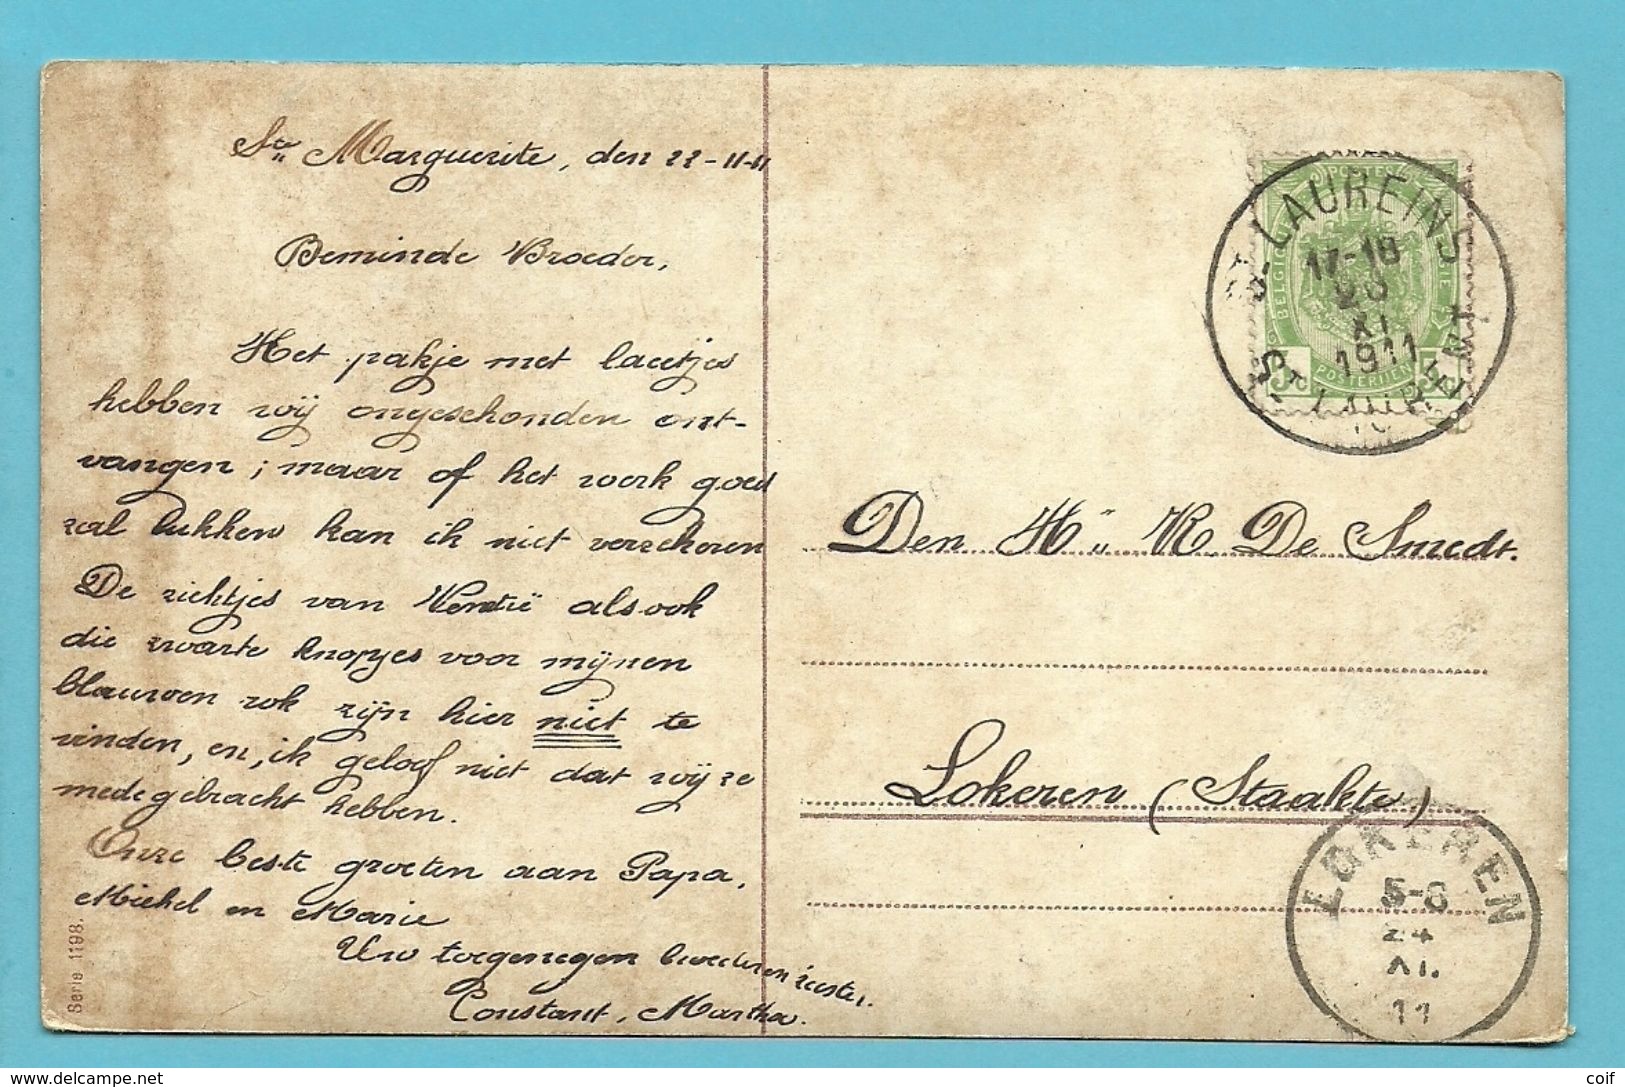 Ste Marguerite, den 22-11-11
Beminde Broeder,
Het pakje met lacetjes
hebben wij ongeschonden ont-
vangen; maar of het werk goed
zal lukken kan ik niet verzekeren
De zichtjes van alsook
die zwarte knopjes voor mijnen
blauwen rok zijn hier niet te
vinden, en, ik geloof niet dat wij ze
medegebracht hebben.
Onze beste groeten aan Papa,
Michel en Marie
Uw toegenegen broeder en zuster.
Constant, Martha.
Serie 1198.
ST LAUREINS
17-18
XI
1911
ST LAURENT
POSTES
BELGIQUE
POSTERIJEN
Den H. De Smedt.
Lokeren (Staakte)
LOKEREN
5-6
24
XI.
11
delcampe.net
coif